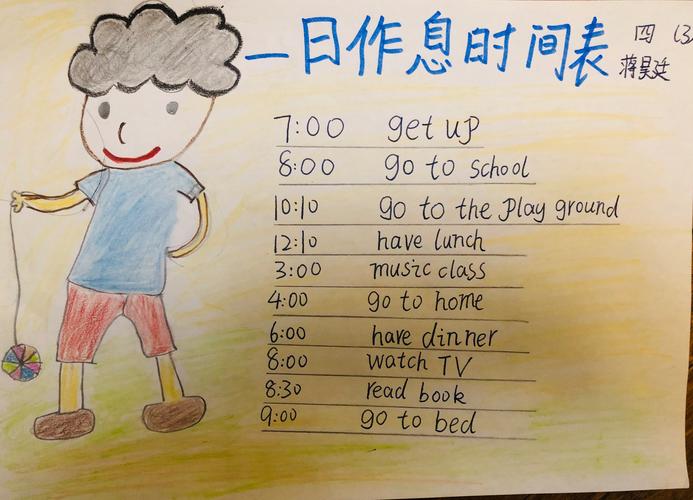 一日作息时间表
四(3
蒋昊廷
7:00 get up
8:00 go to school
10:10 go to the play ground
12:10 have lunch
3:00 music class
4:00 go to home
6:00 have dinner
8:00 watch TV
8:30 read book
9:00 go to bed